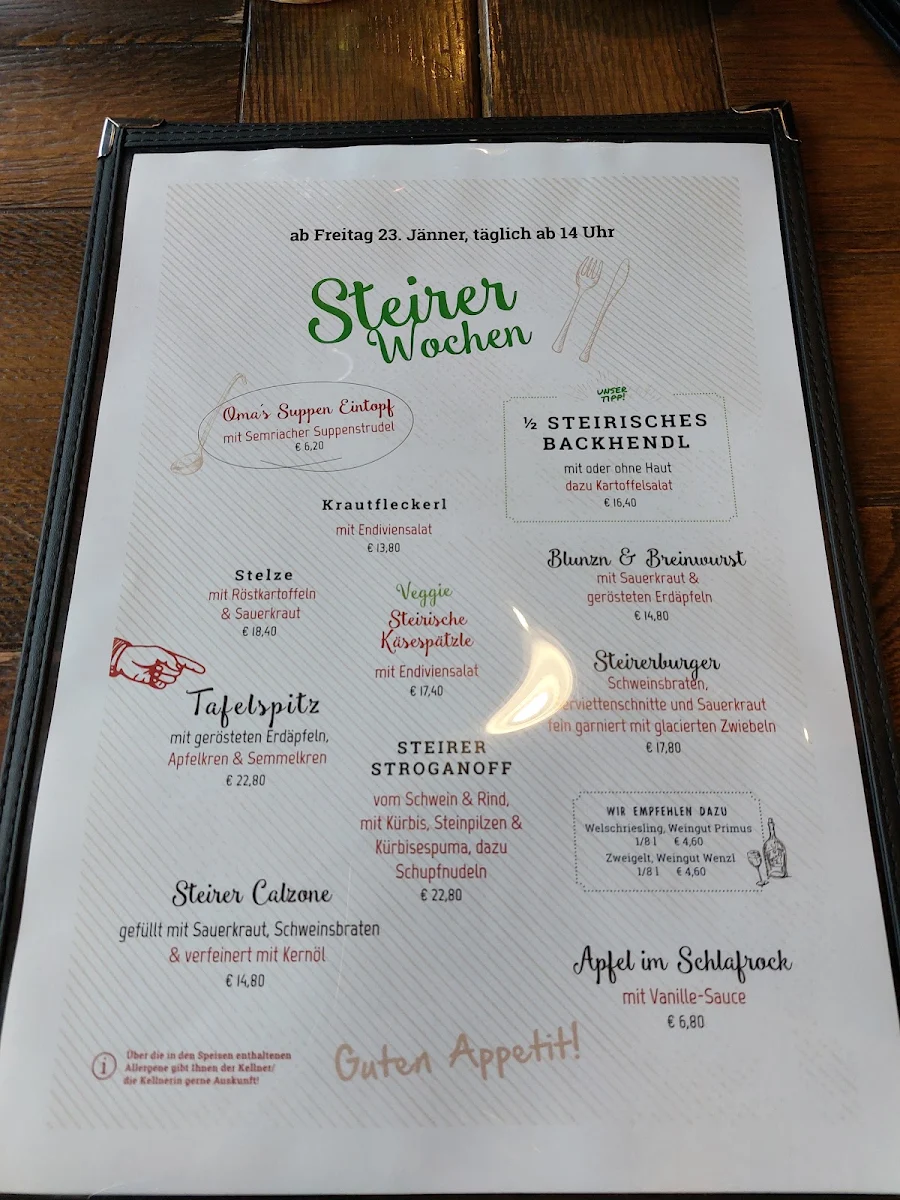 ab Freitag 23. Jänner, täglich ab 14 Uhr
Steirer
Wochen
Oma's Suppen Eintopf
mit Semriacher Suppenstrudel
€ 6,20
UNSER
TIPP!
½ STEIRISCHES
BACKHENDL
mit oder ohne Haut
dazu Kartoffelsalat
€ 16,40
Krautfleckerl
mit Endiviensalat
€ 13,80
Blunzn & Breinwurst
mit Sauerkraut &
gerösteten Erdäpfeln
€ 14,80
Stelze
mit Röstkartoffeln
& Sauerkraut
€ 18,40
Veggie
Steirische
Käsespätzle
mit Endiviensalat
€ 17,40
Steirerburger
Schweinsbraten,
und Sauerkraut
fein garniert mit glacierten Zwiebeln
€ 17,80
Tafelspitz
mit gerösteten Erdäpfeln,
Apfelkren & Semmelkren
€ 22,80
STEIRER
STROGANOFF
vom Schwein & Rind,
mit Kürbis, Steinpilzen &
Kürbisespuma, dazu
Schupfnudeln
€ 22,80
WIR EMPFEHLEN DAZU
Welschriesling, Weingut Primus
1/8 l € 4,60
Zweigelt, Weingut Wenzl
1/8 l € 4,60
Steirer Calzone
gefüllt mit Sauerkraut, Schweinsbraten
& verfeinert mit Kernöl
€ 14,80
Apfel im Schlafrock
mit Vanille-Sauce
€ 6,80
i
Über die in den Speisen enthaltenen
Allergene gibt Ihnen der Kellner/
die Kellnerin gerne Auskunft!
Guten Appetit!